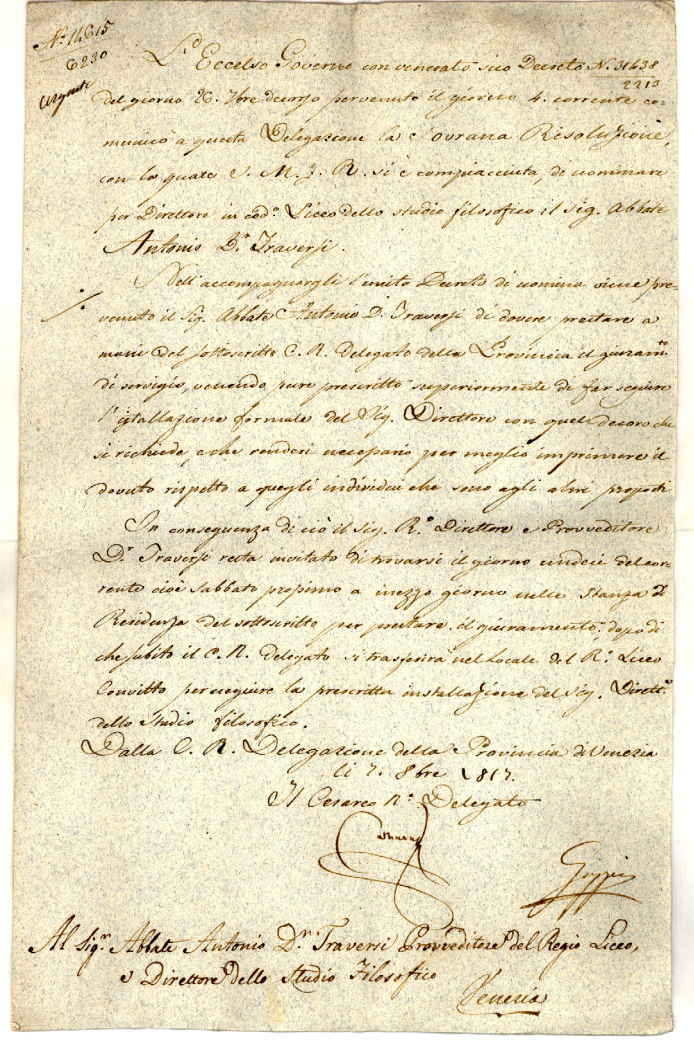 N.° 14615
6230
Urgente
L'Eccelso Governo con venerato suo Decreto N. 31438
2213
del giorno 26. 7bre decorso pervenuto il giorno 4. corrente co-
municò a questa Delegazione la Sovrana Risoluzione,
con la quale S. M. I. R. si è compiacciuta, di nominare
per Direttore in cod.° Liceo dello studio filosofico il Sig. Abbate
Antonio D.r Traversi.
Nell'accompagnargli l'unito Decreto di nomina viene pre-
venuto il Sig. Abbate Antonio D. Traversi di dovere prestare a
mani del sottoscritto C. R. Delegato della Provincia il giuram.to
di servigio, venendo pure prescritto superiormente di far seguire
l'istallazione formale del Sig. Direttore con quel decoro che
si richiede, e che rendesi necessario per meglio imprimere il
dovuto rispetto a quegli individui che sono agli altri preposti
In conseguenza di ciò il Sig. R.° Direttore e Provveditore
D.r Traversi resta invitato di trovarsi il giorno undeci del cor-
rente cioè sabbato prossimo a mezzo giorno nelle Stanza di
Residenza del sottoscritto per prestare il giuramento, dopo di
che subito il C. R. Delegato si trasferirà nel Locale del R.° Liceo
Convitto per eseguire la prescritta installazione del Sig. Dirett.e
dello Studio filosofico.
Dalla C. R. Delegazione della Provincia di Venezia
li 7. 8bre 1817.
Il Cesareo R.° Delegato
Al Sig.r Abbate Antonio D.r Traversi Provveditore del Regio Liceo,
e Direttore dello Studio Filosofico
Venezia